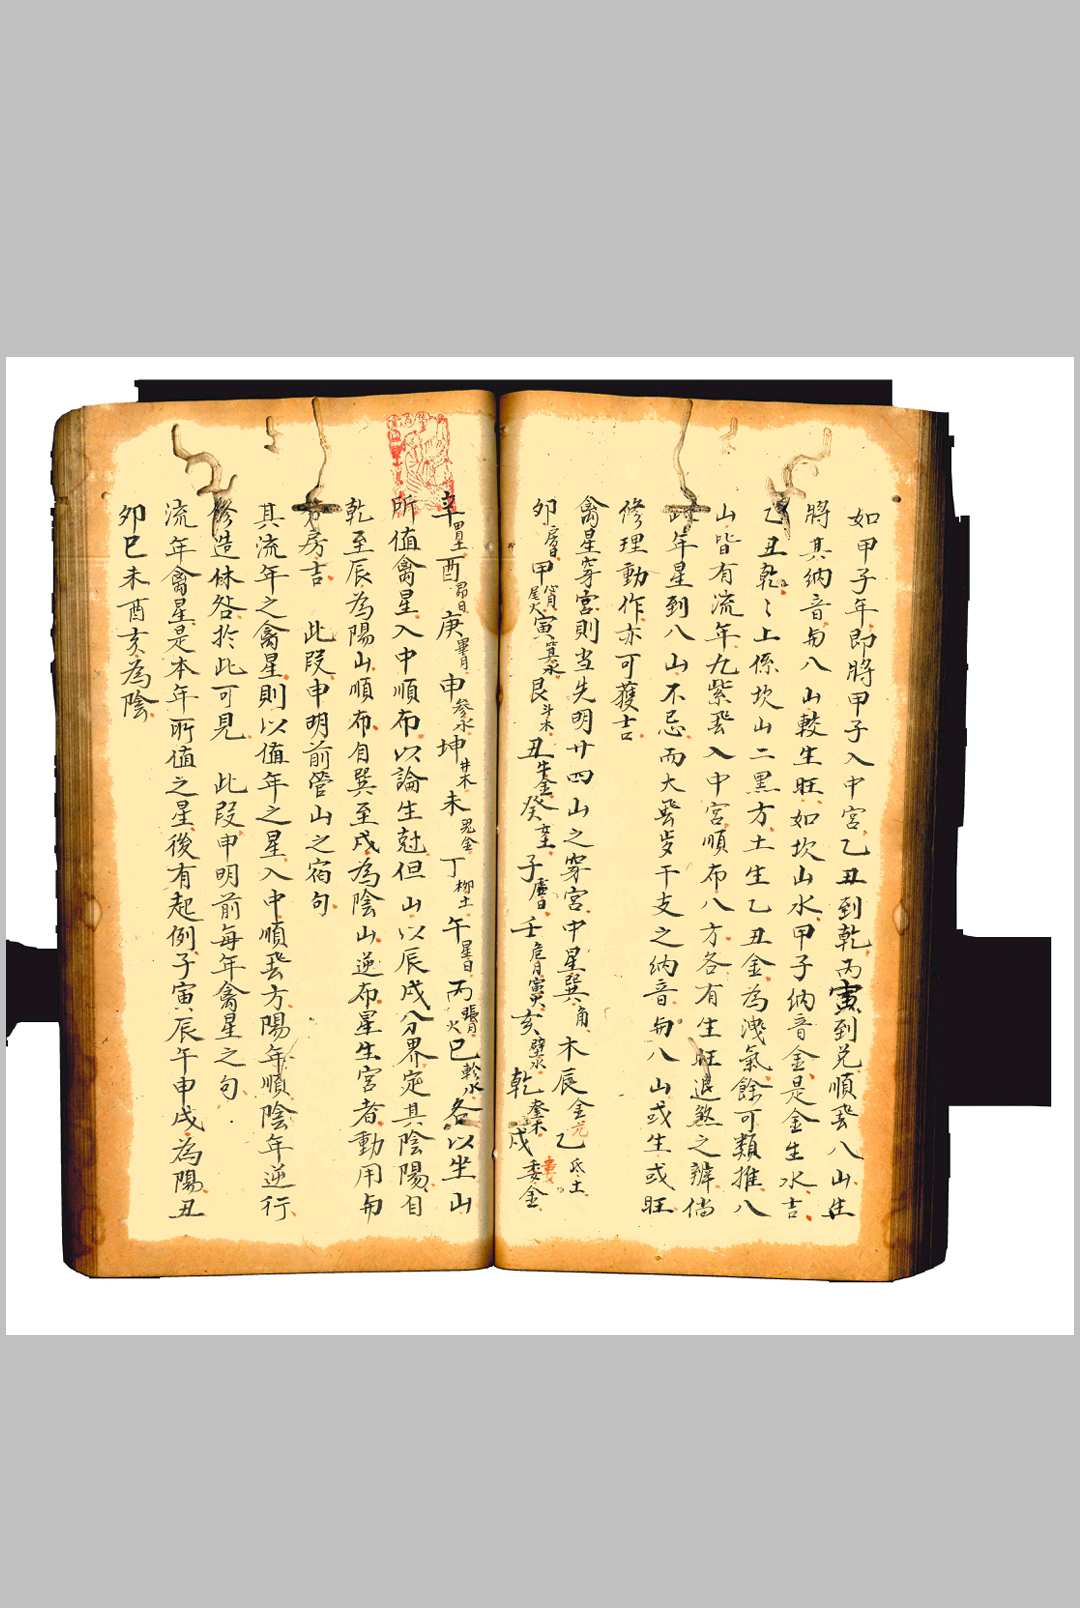 如甲子年即將甲子入中宮乙丑到乾丙寅到兌順飛八山生
將其納音與八山較生旺如坎山水甲子納音金是金生水吉
乙丑乾〻上係坎山二黑方土生乙丑金為洩氣餘可類推八
山皆有流年九紫飛入中宮順布八方各有生旺退煞之辨倘
此年星到八山不忌而大飛歲干支之納音與八山或生或旺
修理動作亦可獲吉
禽星穿宮則当先明廿四山之穿宮中星巽角木辰金亢乙氐土
卯房日甲尾火寅箕水艮斗木丑牛金癸子虛日壬危月亥壁水乾奎木戌婁金
辛酉昴日庚畢月申参水坤井木未鬼金丁柳土午星日丙張月巳軫水各以坐山
所值禽星入中順布以論生尅但山以辰戌分界定其陰陽自
乾至辰為陽山順布自巽至戌為陰山逆布星生宮者動用與
房吉 此段申明前管山之宿句
其流年之禽星則以值年之星入中順飛方陽年順陰年逆行
修造休咎於此可見 此段申明前每年禽星之句
流年禽星是本年所值之星後有起例子寅辰午申戌為陽丑
卯巳未酉亥為陰